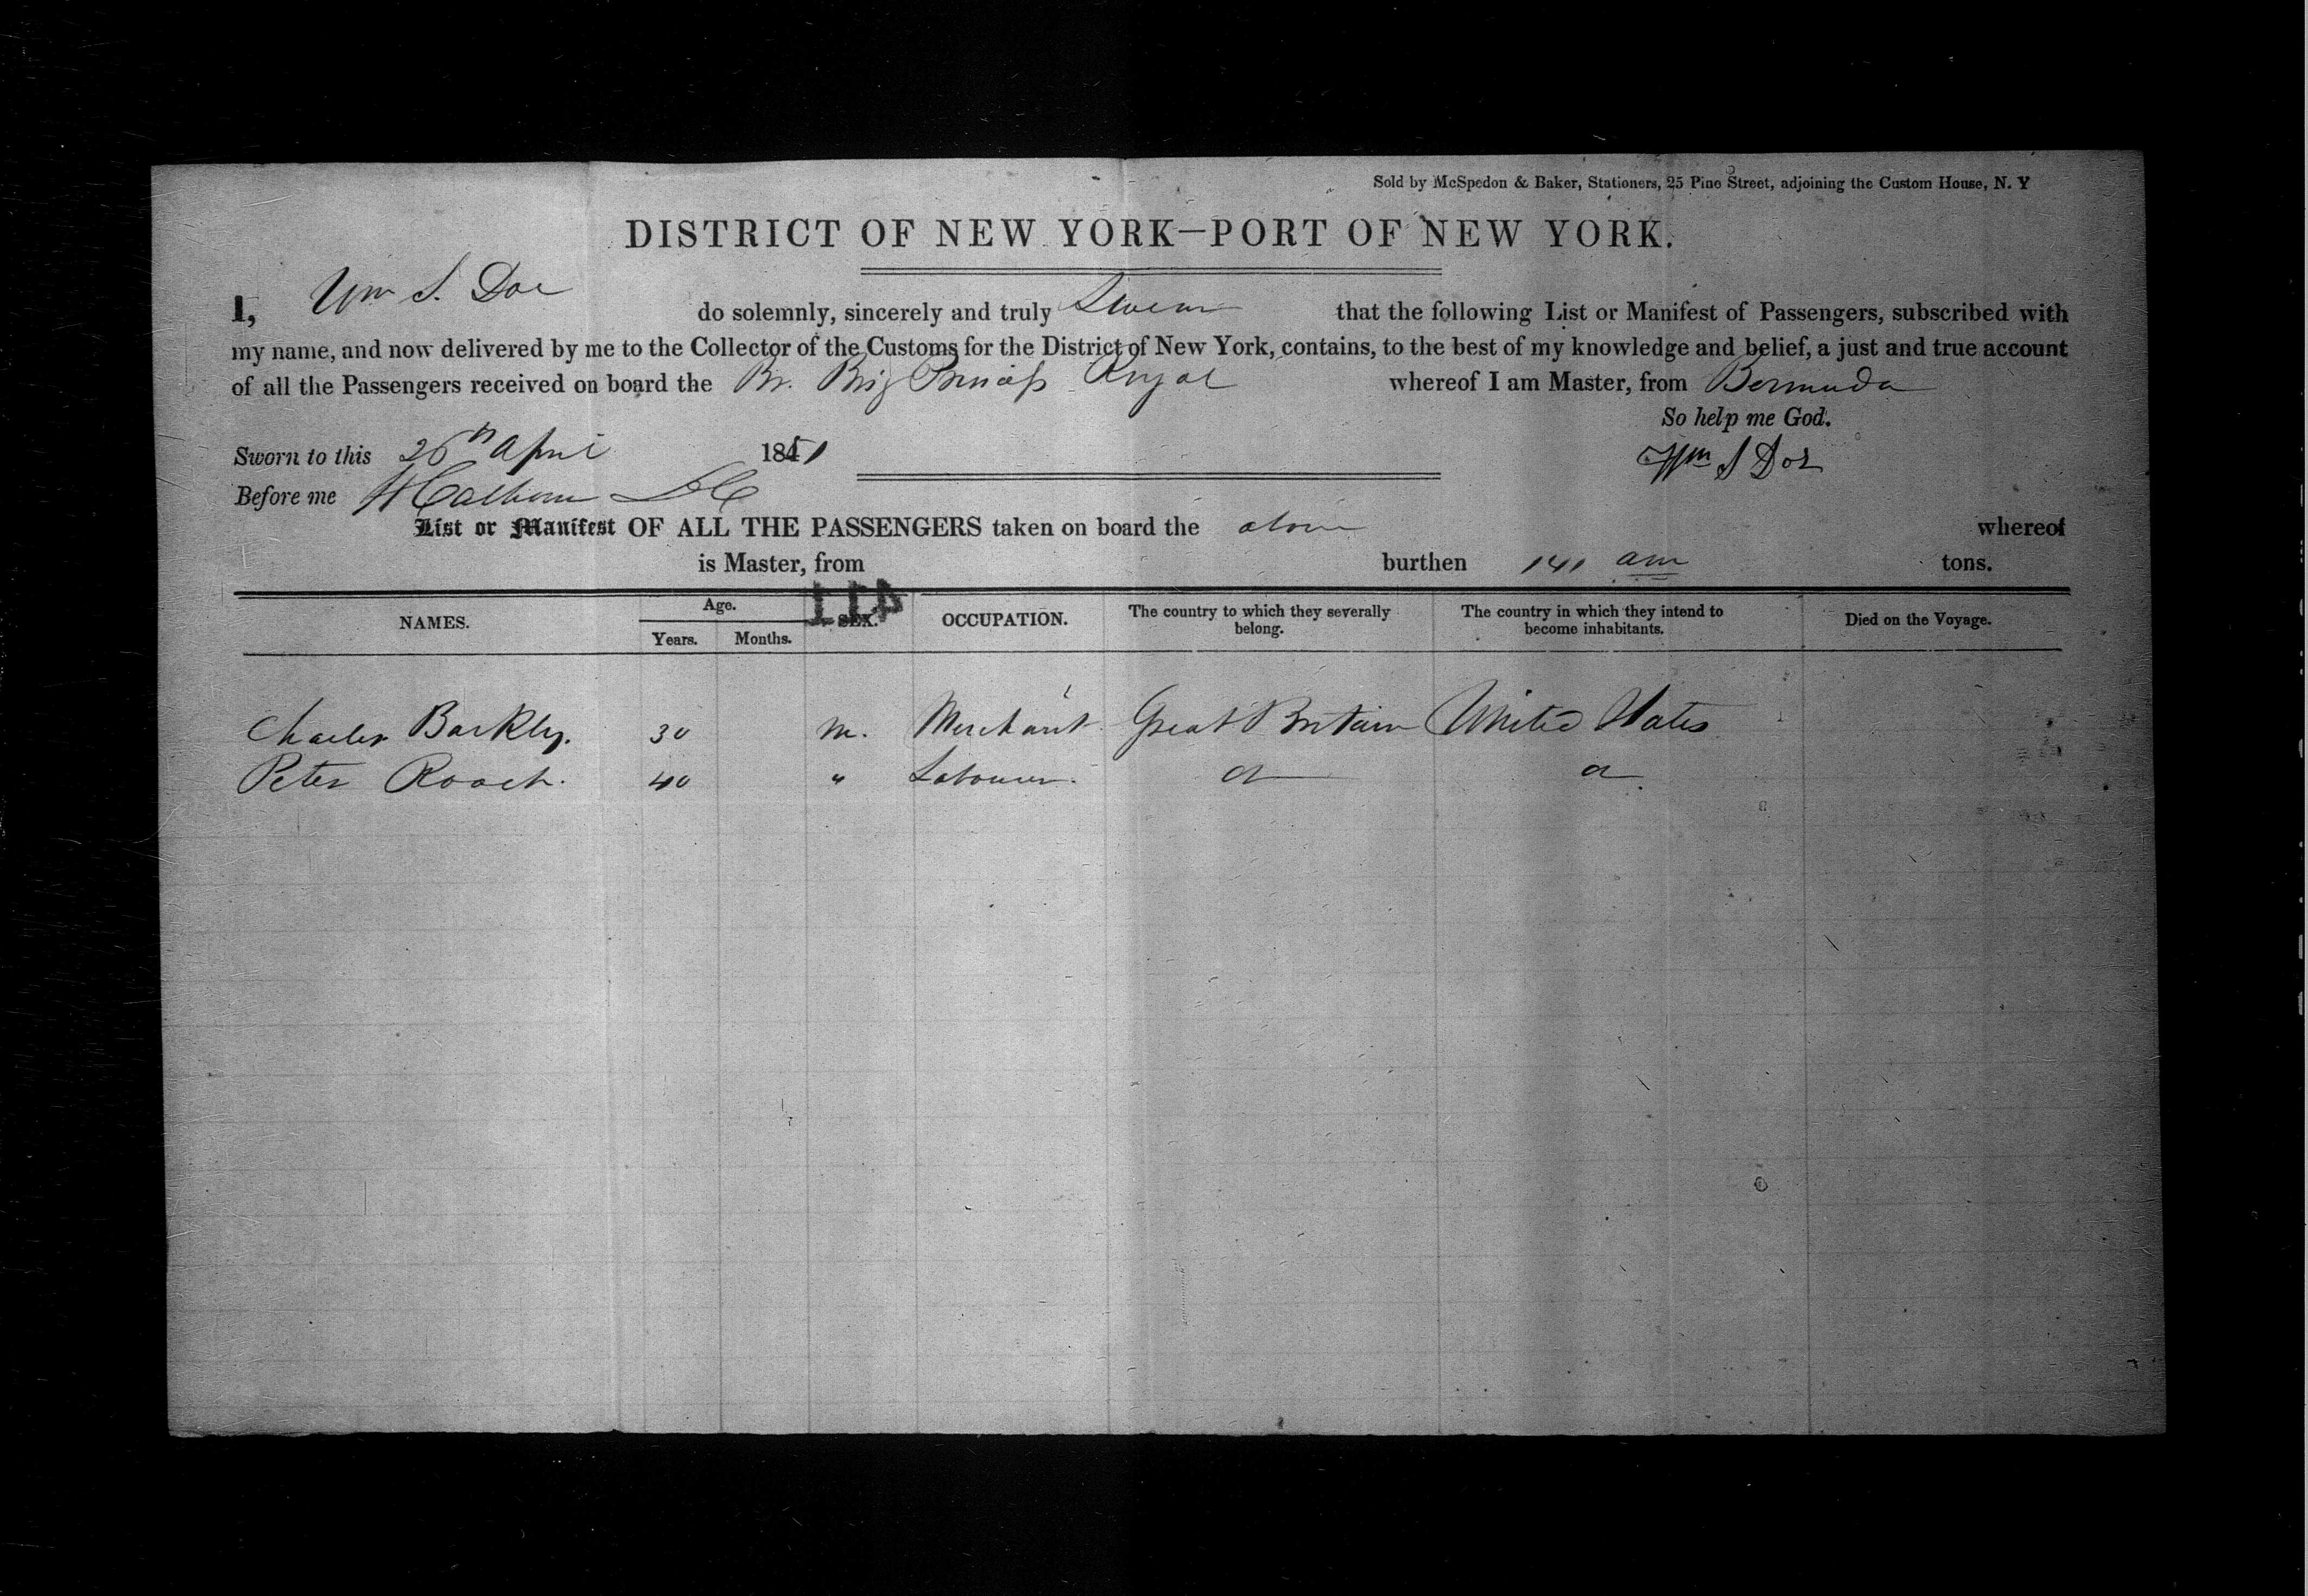 Sold by McSpedon & Baker, Stationers, 25 Pine Street, adjoining the Custom House, N. Y
DISTRICT OF NEW YORK—PORT OF NEW YORK.
I, Wm S. Doe do solemnly, sincerely and truly Swear that the following List or Manifest of Passengers, subscribed with
my name, and now delivered by me to the Collector of the Customs for the District of New York, contains, to the best of my knowledge and belief, a just and true account
of all the Passengers received on board the Br. Brig Princess Royal whereof I am Master, from Bermuda
So help me God.
Sworn to this 26th April 1851
Wm S Doe
Before me H Calhoun
List or Manifest OF ALL THE PASSENGERS taken on board the above whereof
is Master, from burthen 141 tons.
411
NAMES. Age. Years. Months. SEX. OCCUPATION. The country to which they severally belong. The country in which they intend to become inhabitants. Died on the Voyage.
Charles Barkly. 30 M. Merchant Great Britain United States
Peter Roach. 40 " Labourer.